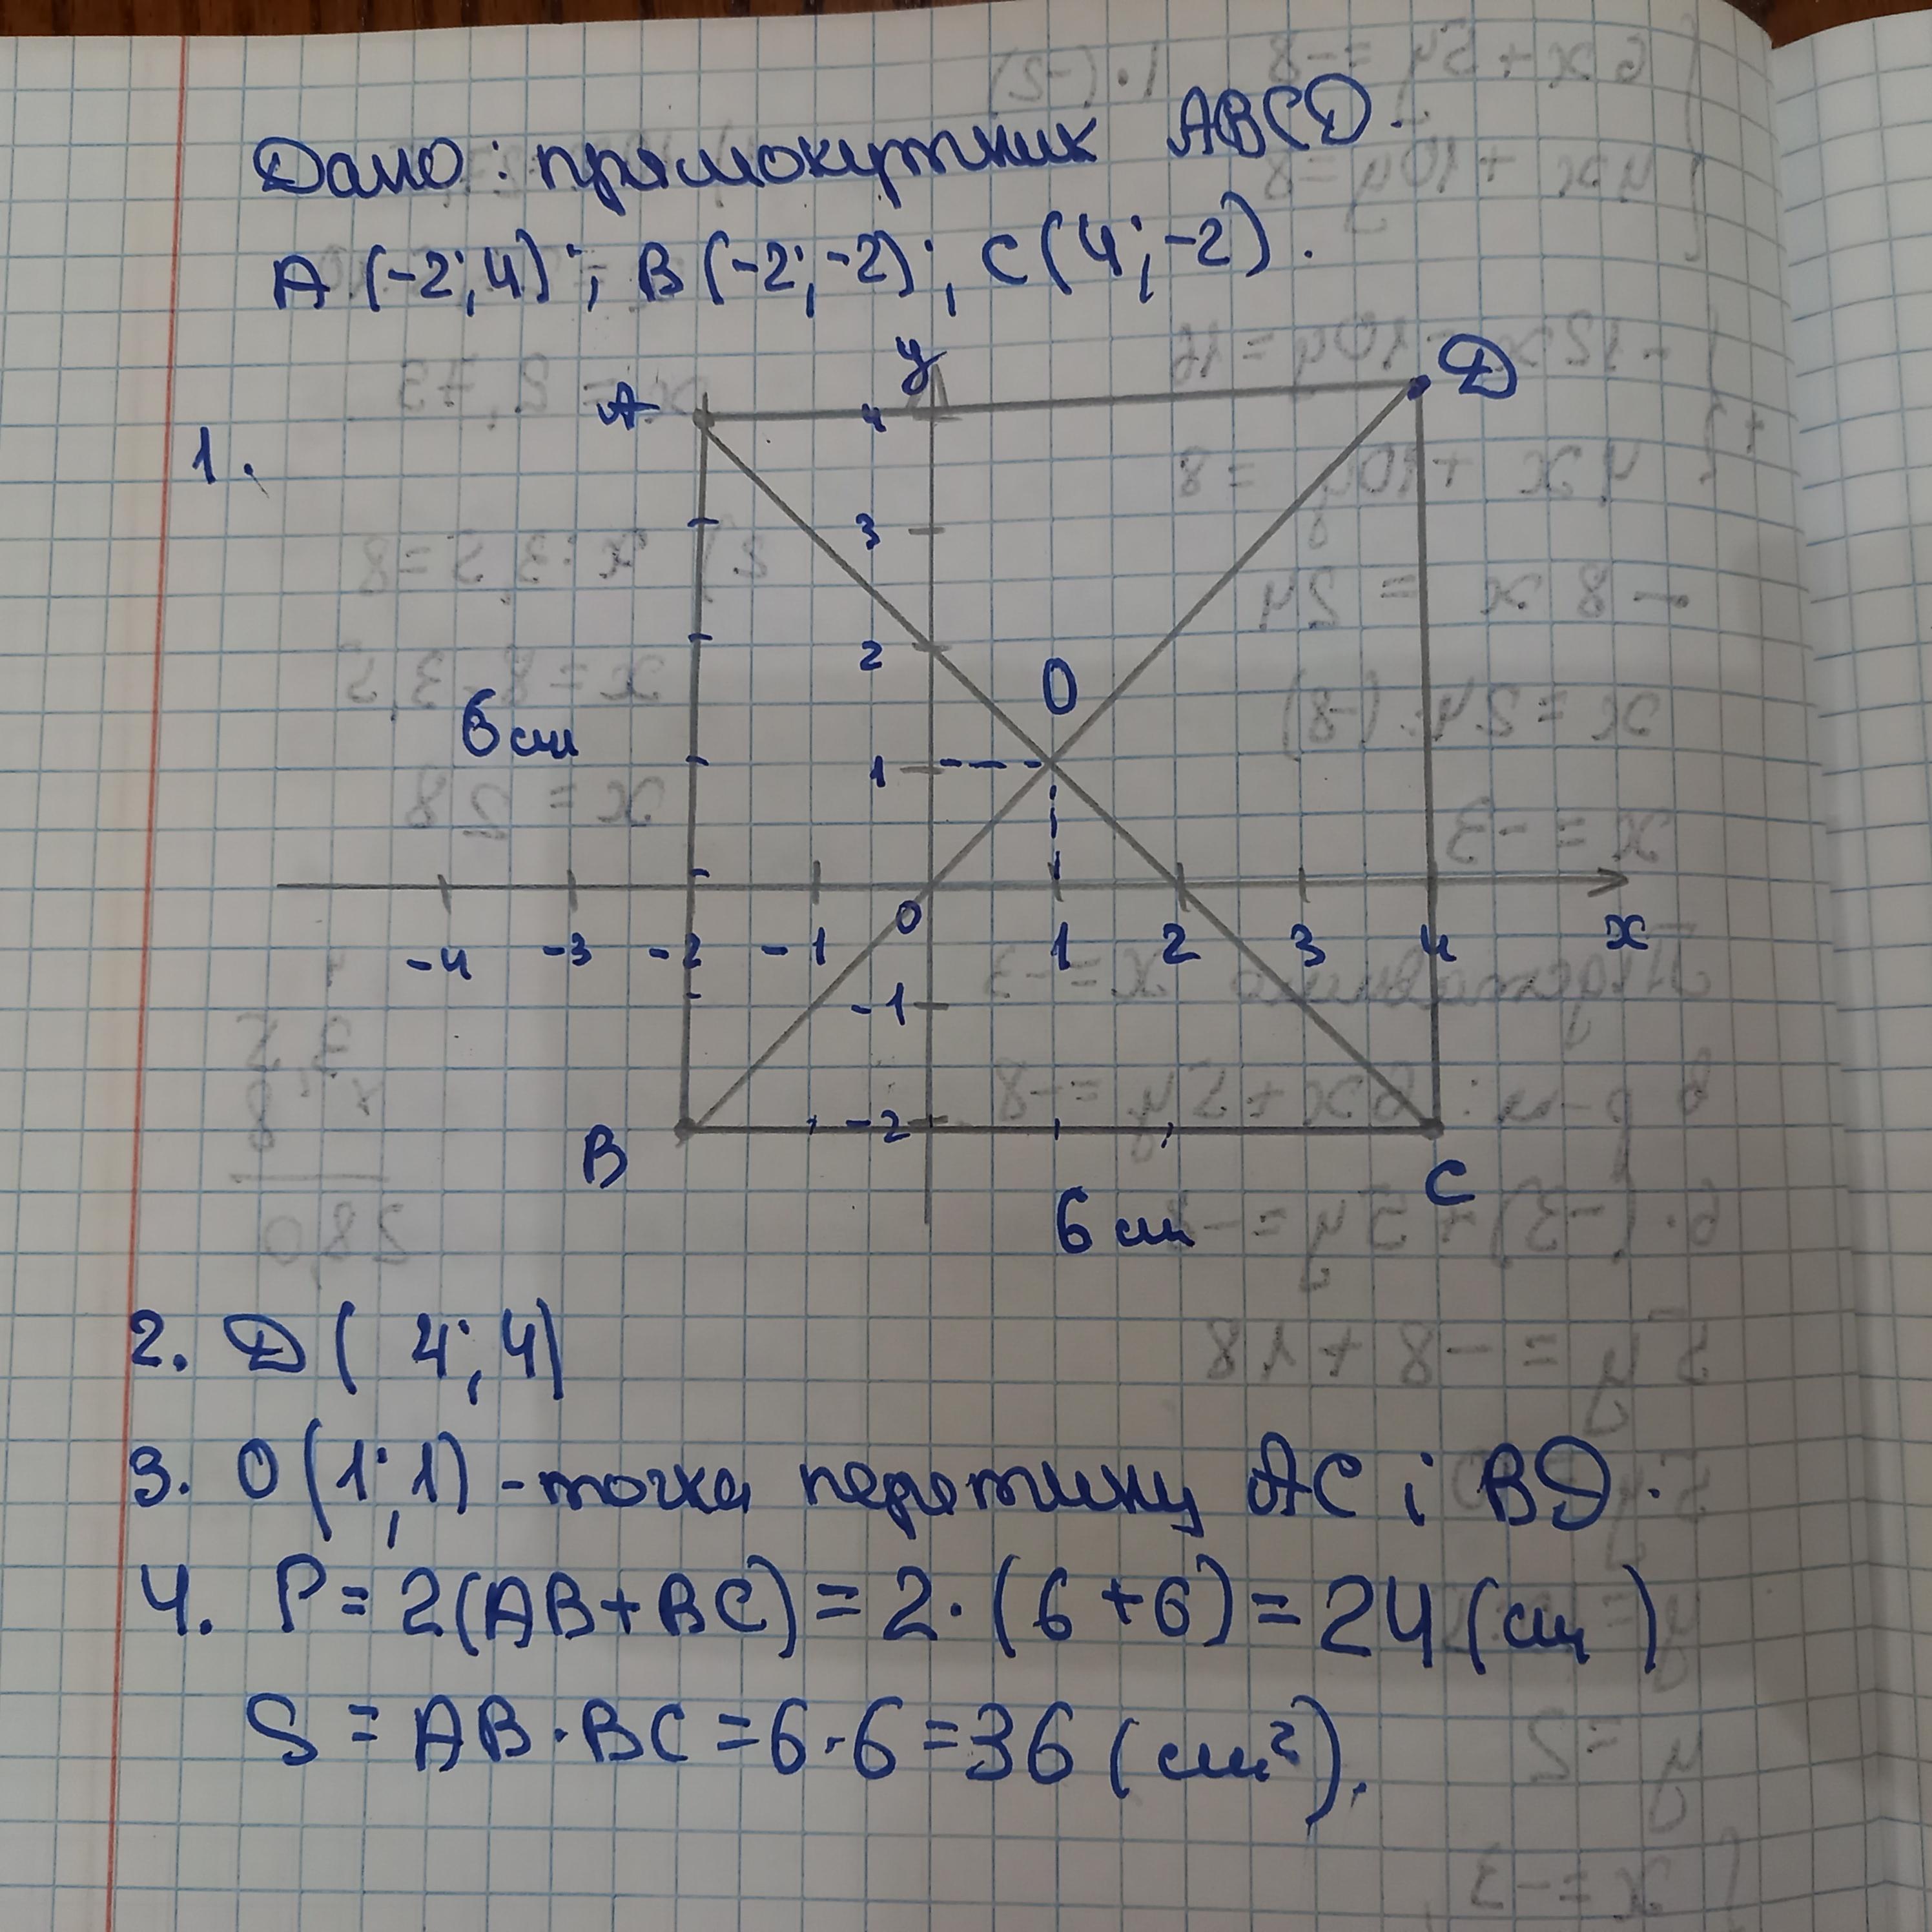 Дано: прямокутник ABCD.
A (-2; 4); B (-2; -2); C (4; -2).
1.
y
A
D
4
3
2
O
6 см
1
0
-4 -3 -2 -1 1 2 3 4 x
-1
-2
B
C
6 см
2. D ( 4; 4)
3. O (1; 1) - точка перетину AC і BD.
4. P = 2(AB + BC) = 2 · (6 + 6) = 24 (см)
S = AB · BC = 6 · 6 = 36 (см²).